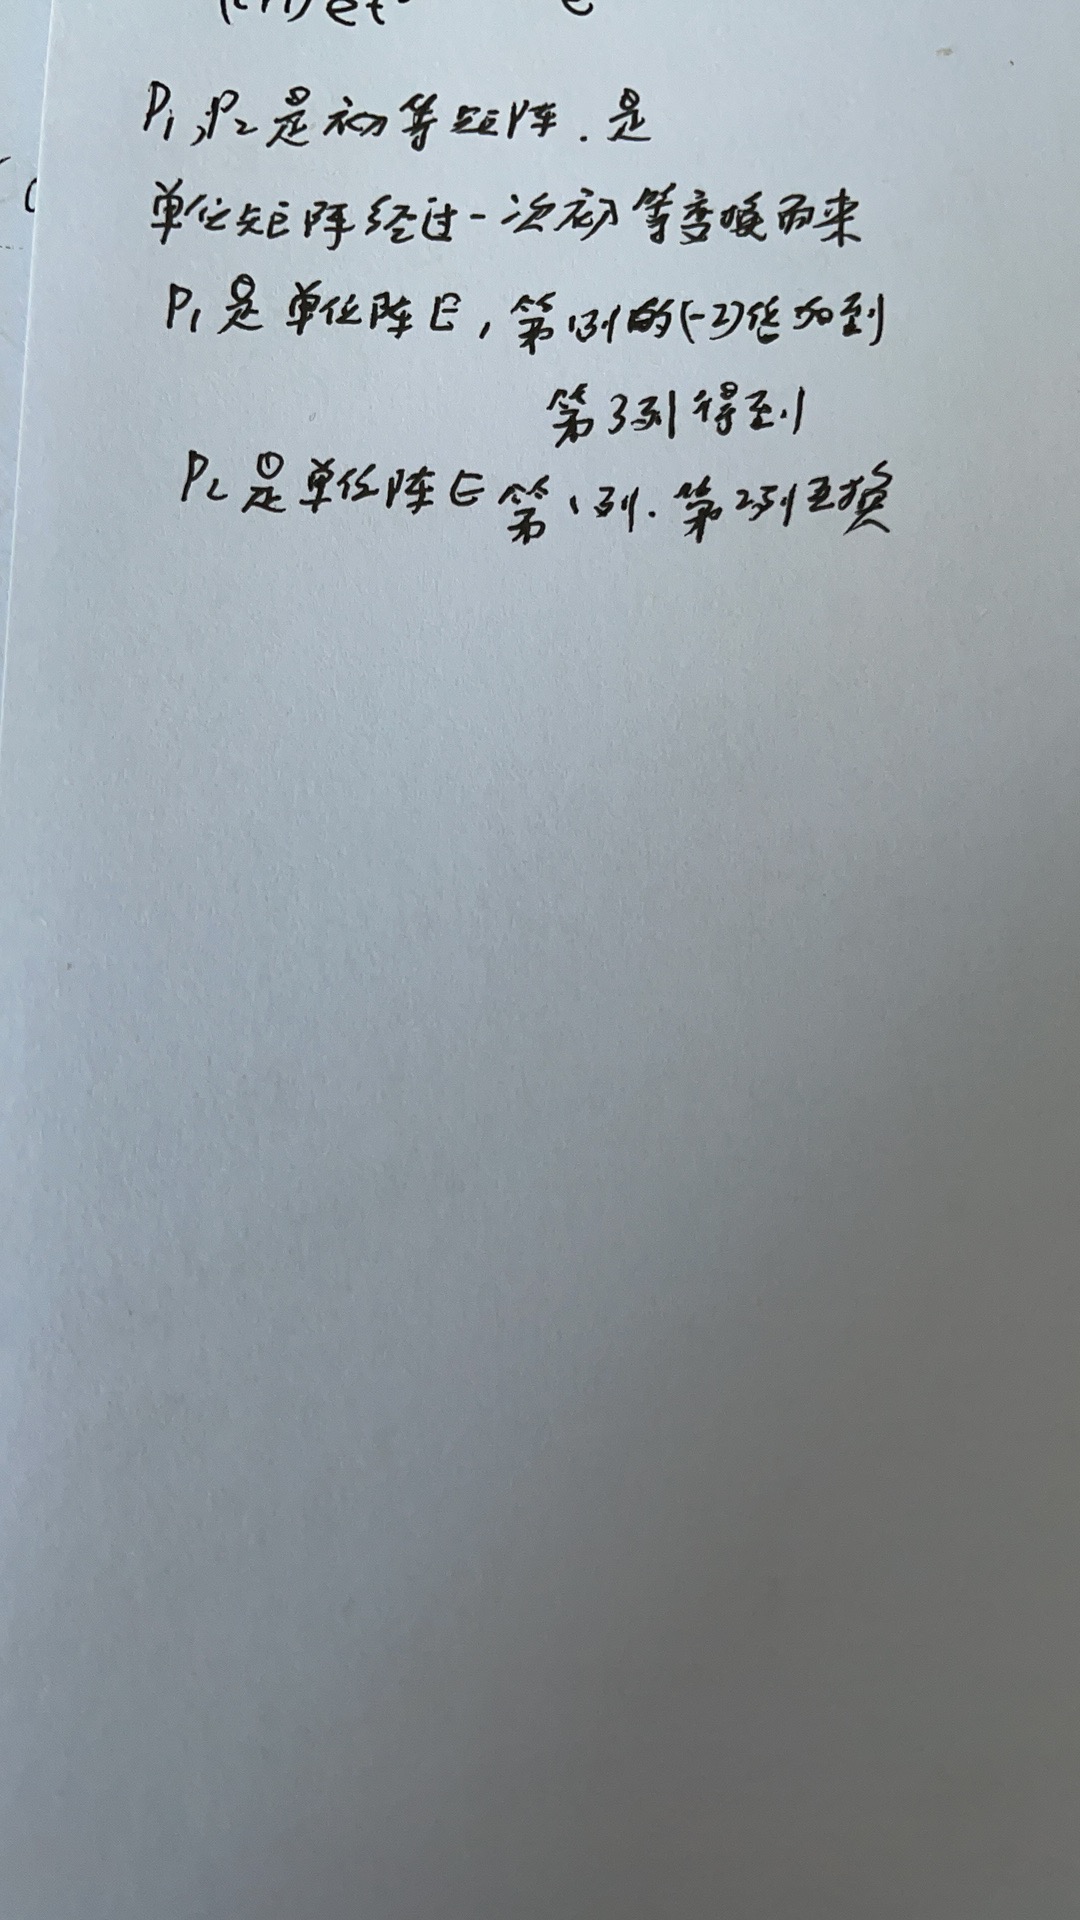 P₁,P₂是初等矩阵.是
单位矩阵经过一次初等变换而来
P₁是单位阵E,第1列的(-2)倍加到
第3列得到
P₂是单位阵E第1列.第2列互换